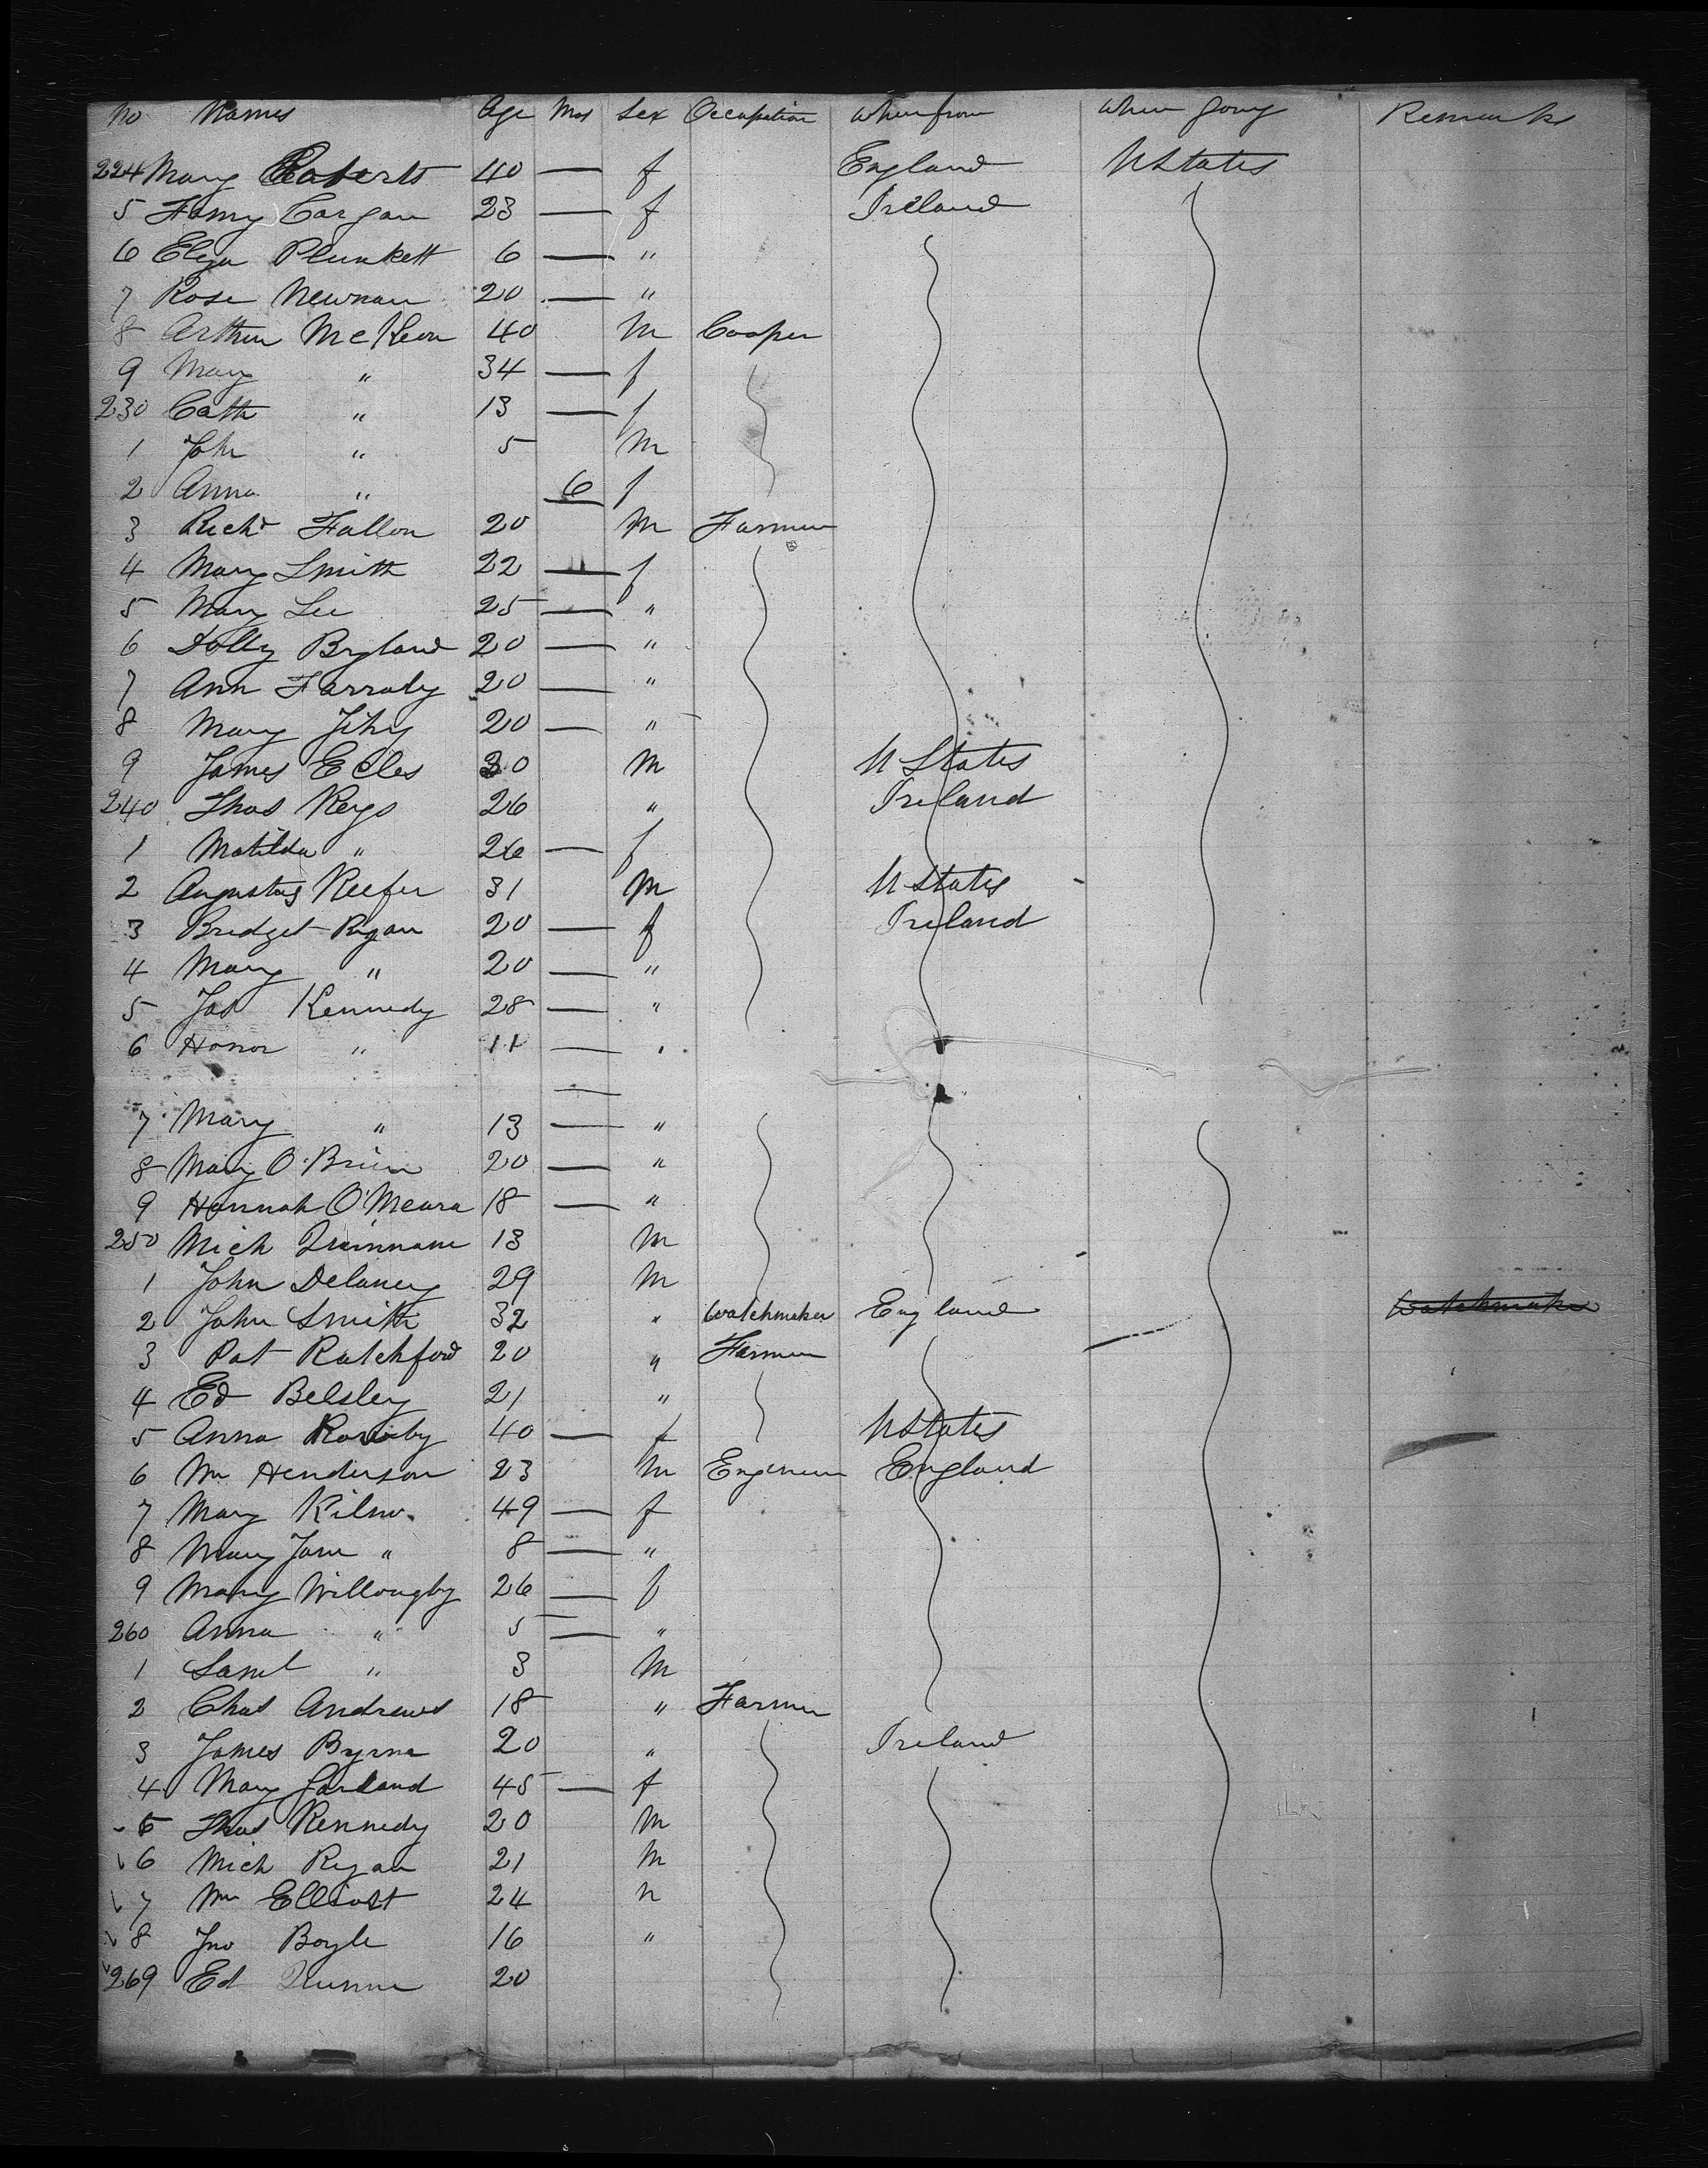 No Names Age Mos Sex Occupation Where from Where going Remarks
224 Mary Roberts 40 — f England UStates
5 Fanny Corgan 23 — f Ireland
6 Eliza Plunkett 6 — "
7 Rose Newnan 20 — "
8 Arthur McKeon 40 M Cooper
9 Mary " 34 — f
230 Cath " 13 — f
1 John " 5 M
2 Anna " 6 f
3 Richd Fallon 20 M Farmer
4 Mary Smith 22 — f
5 Mary Lee 25 — "
6 Dolly Byland 20 — "
7 Ann Farraly 20 — "
8 Mary 20 — "
9 James Eccles 30 M UStates
240 Thos Keys 26 " Ireland
1 Matilda " 26 — f
2 Augustus Keefer 31 M UStates
3 Bridget Ryan 20 — f Ireland
4 Mary " 20 — "
5 Jas Kennedy 28 — "
6 Honor " 11 — "
7 Mary " 13 — "
8 Mary O'Brien 20 — "
9 Hannah O'Meara 18 — "
250 Mich Quinnane 13 M
1 John Delaney 29 M
2 John Smith 32 " Watchmaker England Watchmaker
3 Pat Ratchford 20 " Farmer
4 Ed Belsley 21 "
5 Anna 40 — f UStates
6 Wm Henderson 23 M Engineer England
7 Mary Kilno. 49 — f
8 Mary Jane " 8 — "
9 Mary Willougby 26 — f
260 Anna " 5 — "
1 Saml " 3 M
2 Chas Andrews 18 " Farmer
3 James Byrne 20 " Ireland
4 Mary Garland 45 — f
5 Thos Kennedy 20 M
6 Mich Ryan 21 M
7 Wm Elliott 24 "
8 Jno Boyle 16 "
269 Ed Quinn 20